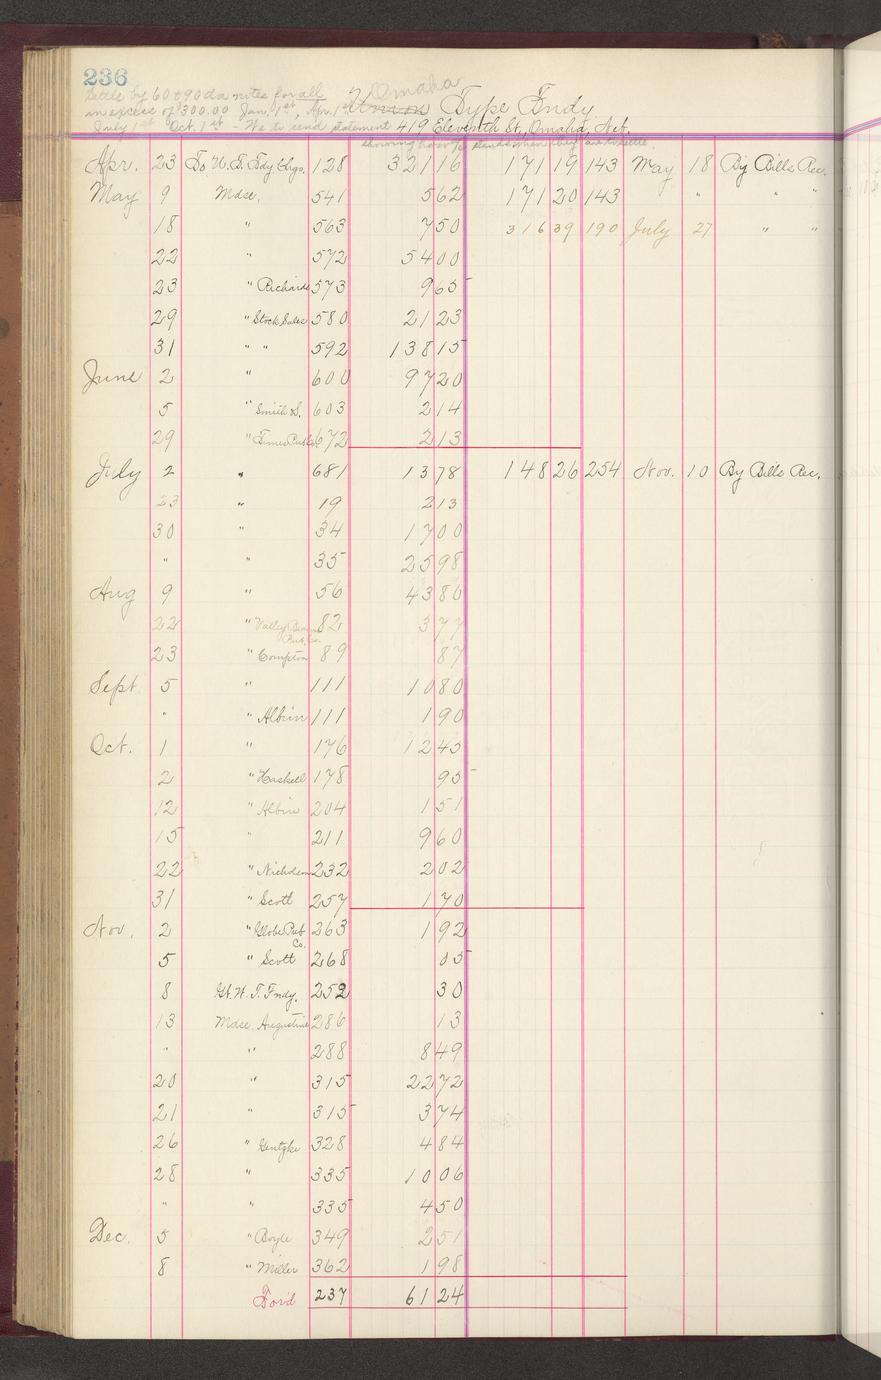 236
Settle by 60 & 90 da notes for all Omaha
in excess of $300.00 Jan. 1st, Apr. 1st Type Fndy
July 1st Oct. 1st - We to send statement 419 Eleventh St., Omaha, Neb.
showing how a/c stands when they are to settle.
Apr. 23 To N.T. Fdy Chgs. 128 321 16 171 19 143 May 18 By Bills Rec.
May 9 Mdse. 541 5 62 171 20 143 " " "
18 " 563 7 50 316 39 190 July 27 " "
22 " 572 54 00
23 " Richards 573 9 65
29 " Stock Sales 580 21 23
31 " " 592 138 15
June 2 " 600 97 20
5 " Smith & S. 603 2 14
29 " Times Pub Co. 672 2 13
July 2 " 681 13 78 148 26 254 Nov. 10 By Bills Rec.
23 " 19 2 13
30 " 34 17 00
" " 35 25 98
Aug 9 " 56 43 80
22 " Valley 82 3 77
Pub. Co.
23 " Compton 89 87
Sept. 5 " 111 10 80
" " Albin 111 1 90
Oct. 1 " 176 12 45
2 " Haskell 178 95
12 " Albin 204 1 51
15 " 211 9 60
22 " Nicholson 232 2 02
31 " Scott 257 1 70
Nov. 2 " Globe Pub 263 1 92
Co.
5 " Scott 268 05
8 Gt. W. T. Fndy. 252 30
13 Mdse. Augustine 286 13
" " 288 8 49
20 " 315 22 72
21 " 315 3 74
26 " Gentzke 328 4 84
28 " 335 10 06
" " 335 4 50
Dec. 5 " Boyle 349 2 51
8 " Miller 362 1 98
For'd 237 61 24